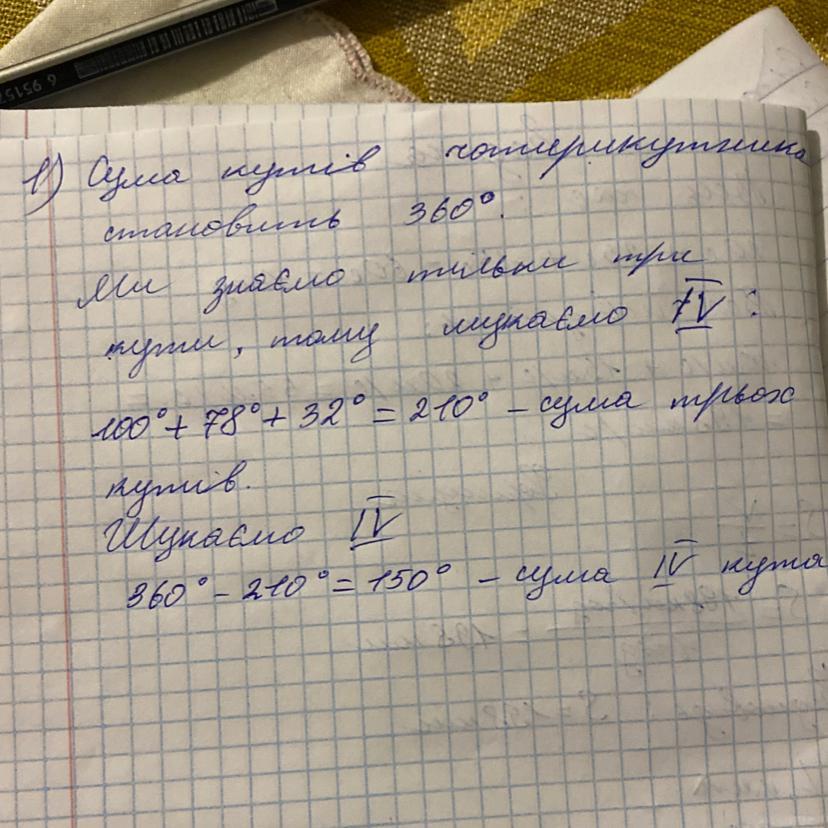 1) Сума кутів чотирикутника
становить 360°.
Ми знаємо тільки три
кути, тому шукаємо IV :
100° + 78° + 32° = 210° - сума трьох
кутів.
Шукаємо IV
360° - 210° = 150° - сума IV кута